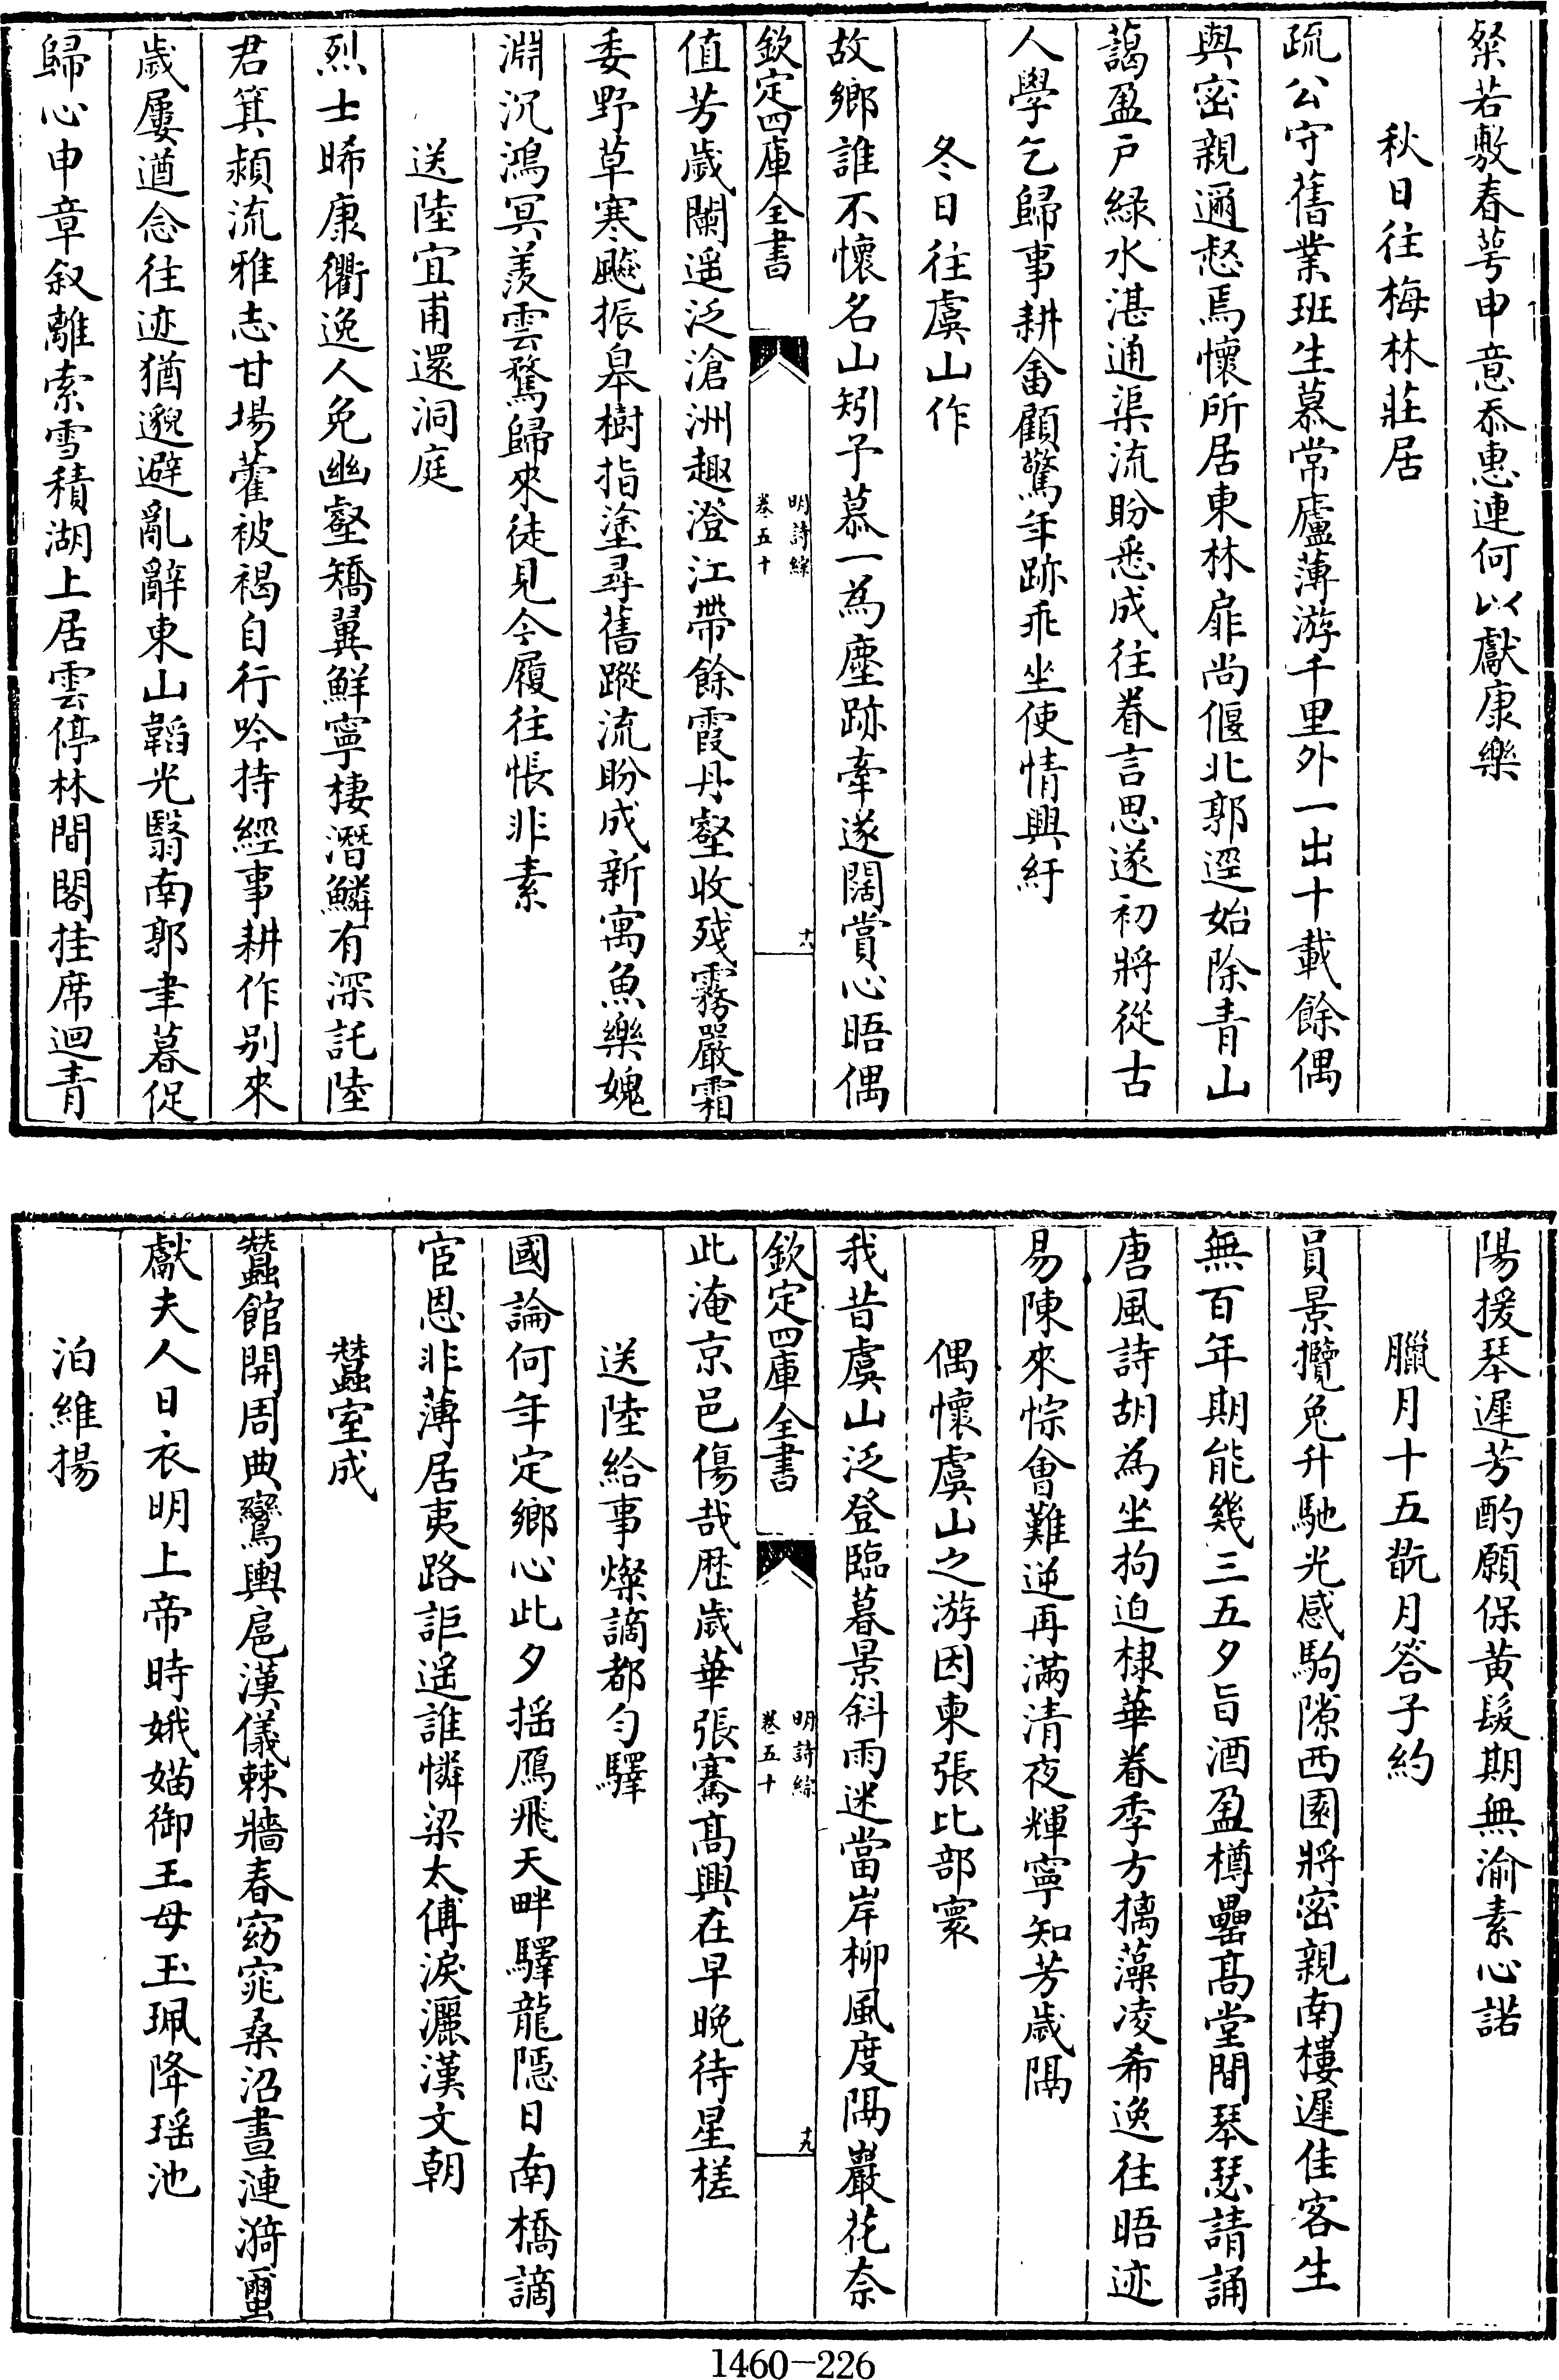 粲若敷春萼申意忝惠連何以獻康樂
秋日往梅林莊居
疏公守舊業班生慕常廬薄游千里外一出十載餘偶
與密親邇惄焉懷所居東林扉尚偃北郭逕始除青山
藹盈戸綠水湛通渠流盼悉成往眷言思遂初將從古
人學乞歸事耕畬顧驚年跡乖坐使情興紆
冬日往虞山作
故鄉誰不懷名山矧予慕一為塵跡牽遂闊賞心晤偶
欽定四庫全書
明詩綜
卷五十
十八
值芳歲闌遥泛滄洲趣澄江帶餘霞丹壑收殘霧嚴霜
委野草寒飈振皋樹指塗尋舊蹤流盼成新寓魚樂媿
淵沉鴻冥羨雲騖歸來徒見今履往悵非素
送陸宜甫還洞庭
烈士晞康衢逸人免幽壑矯翼鮮寧棲潛鱗有深託陸
君箕潁流雅志甘場藿被褐自行吟持經事耕作别來
歲屢遒念往迹猶邈避亂辭東山韜光翳南郭聿暮促
歸心申章叙離索雪積湖上居雲停林間閣挂席迴青
陽援琴遲芳酌願保黄髮期無渝素心諾
臘月十五翫月答子約
員景攬兔升馳光感駒隙西園將密親南樓遲佳客生
無百年期能幾三五夕旨酒盈樽罍髙堂間琴瑟請誦
唐風詩胡為坐拘迫棣華眷季方摛藻凌希逸往晤迹
易陳來悰會難逆再滿清夜輝寧知芳歲隔
偶懷虞山之游因柬張比部寰
我昔虞山泛登臨暮景斜雨迷當岸柳風度隔巖花奈
欽定四庫全書
明詩綜
卷五十
十九
此淹京邑傷哉歴歲華張騫髙興在早晚待星槎
送陸給事燦謫都勻驛
國論何年定鄉心此夕揺鴈飛天畔驛龍隱日南橋謫
宦恩非薄居夷路詎遥誰憐梁太傅淚灑漢文朝
蠶室成
蠶館開周典鸞輿扈漢儀棘牆春窈窕桑沼晝漣漪璽
獻夫人日衣明上帝時娥媌御王母玉珮降瑶池
泊維揚
1460-226